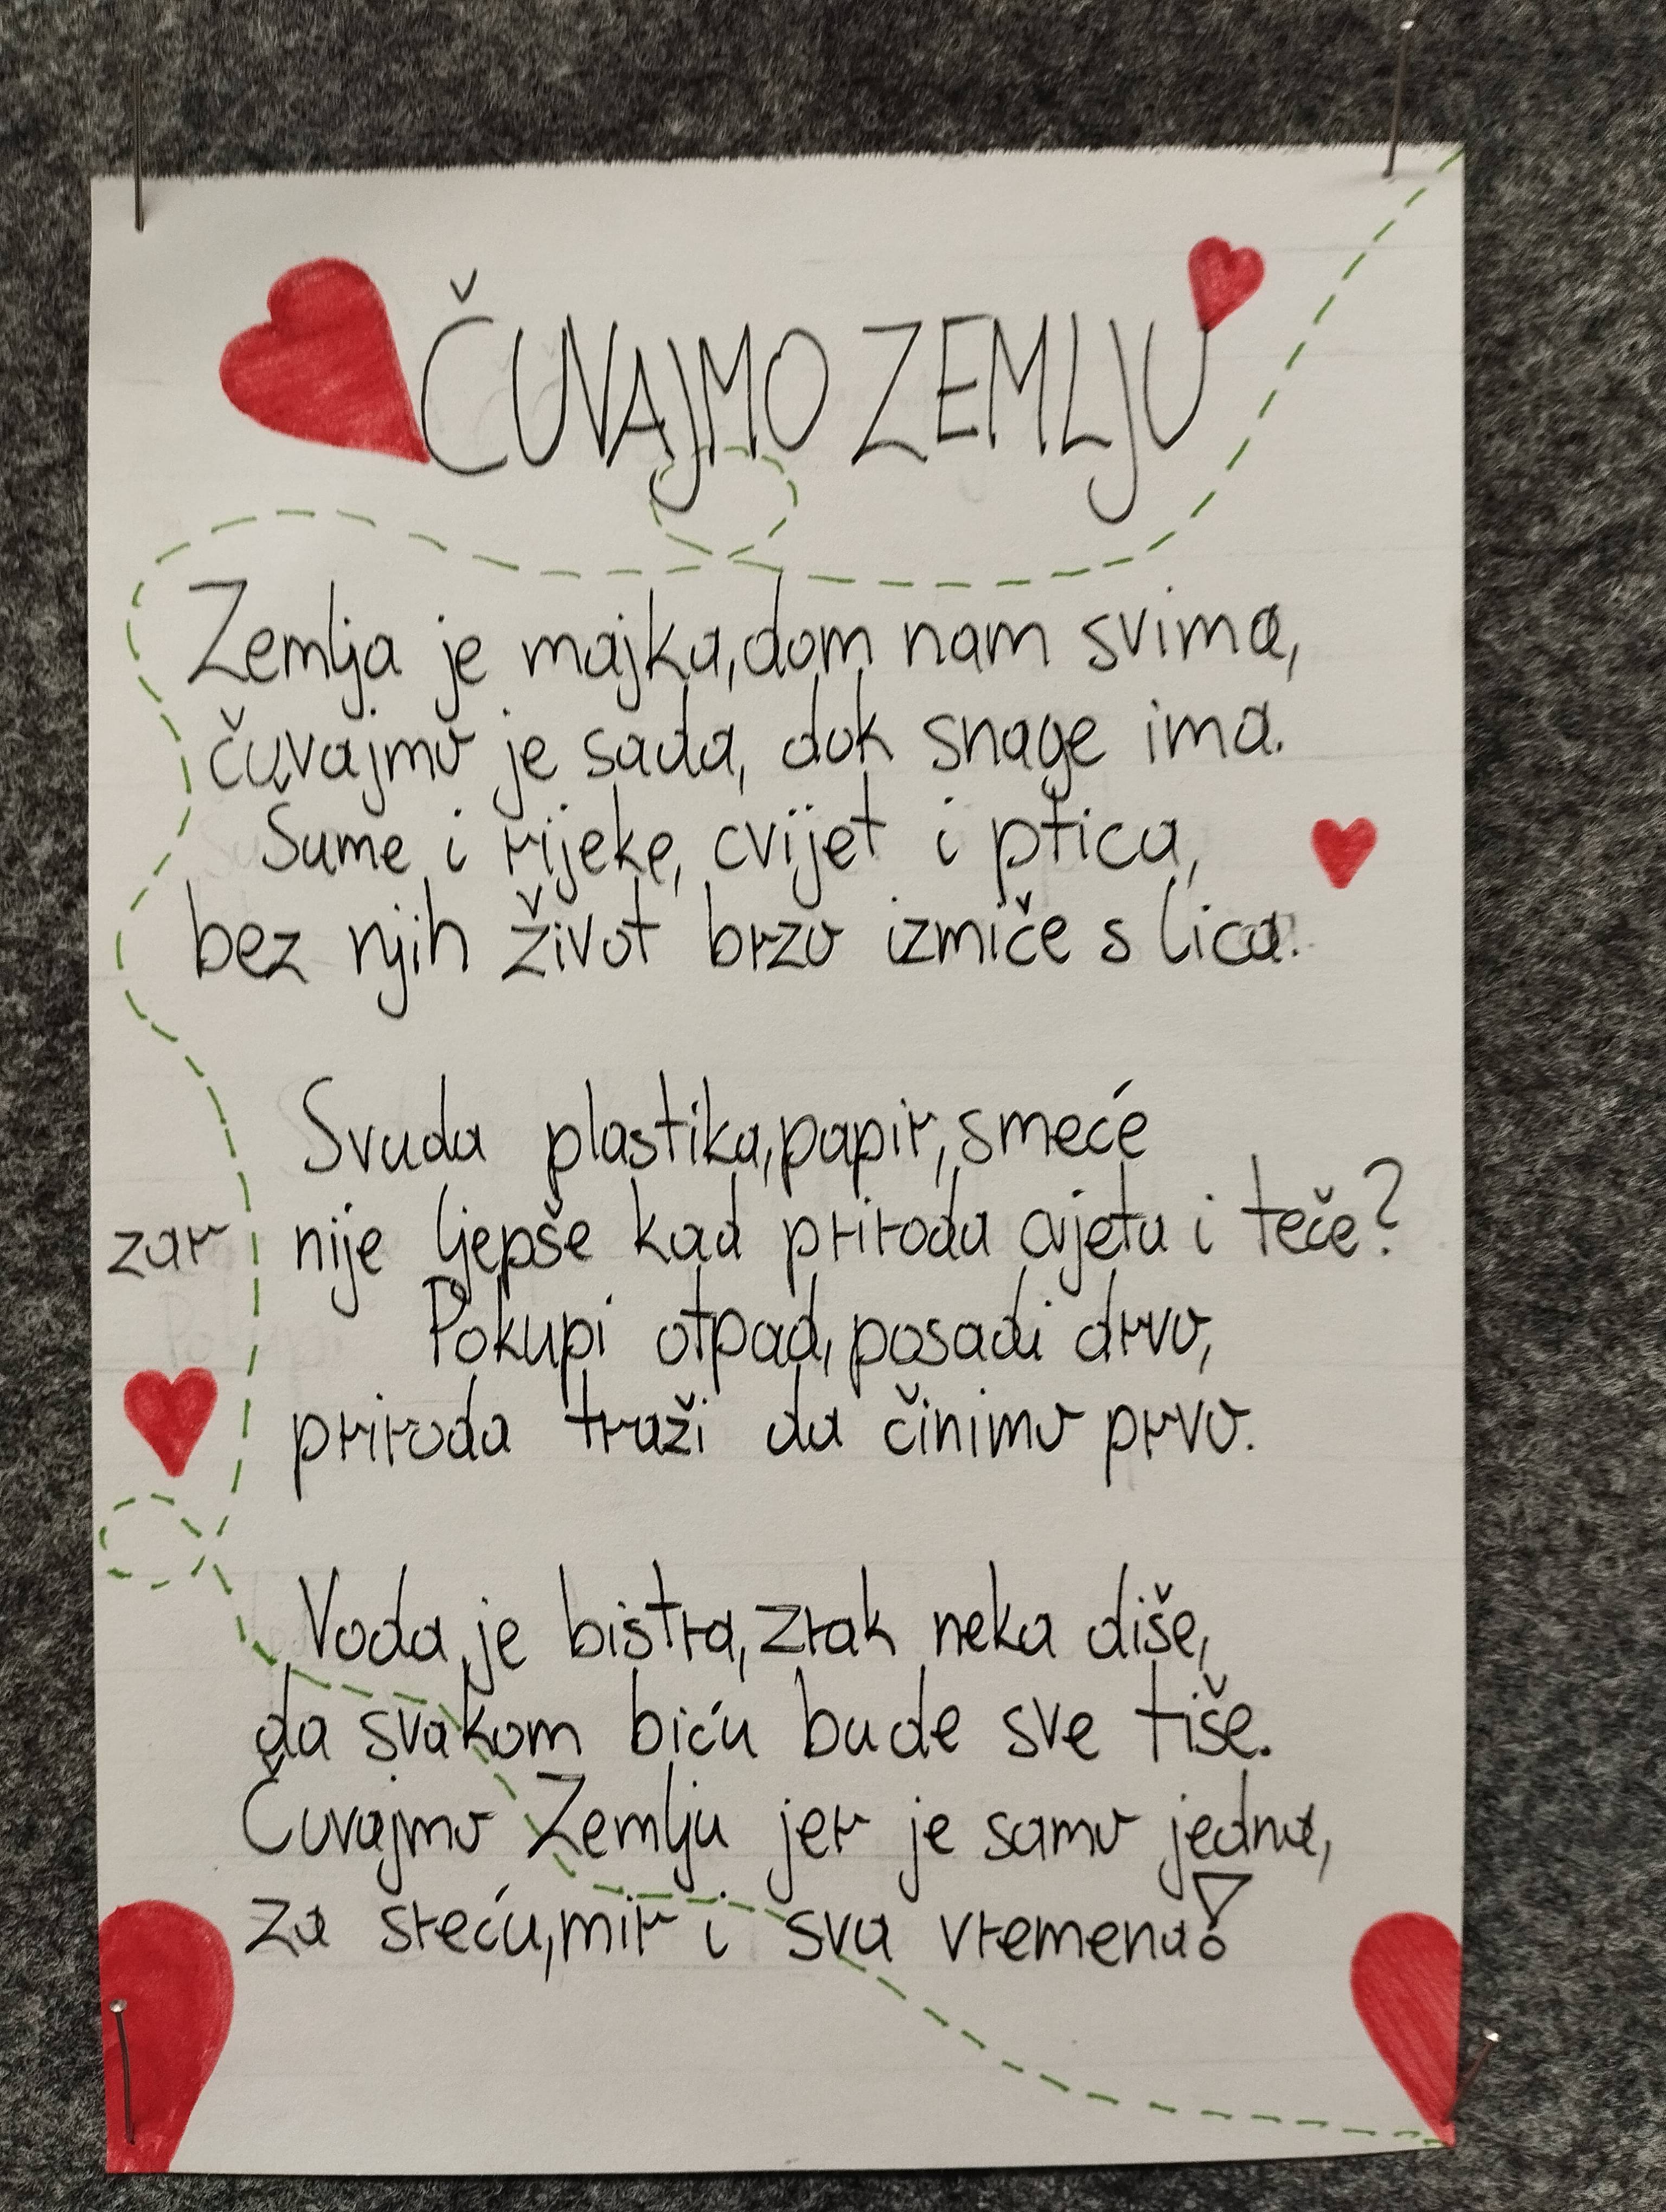 ČUVAJMO ZEMLJU
Zemlja je majka, dom nam svima,
čuvajmo je sada, dok snage ima.
Šume i rijeke, cvijet i ptica,
bez njih život brzo izmiče s lica.
Svuda plastika, papir, smeće
zar nije ljepše kad priroda cvjeta i teče?
Pokupi otpad, posadi drvo,
priroda traži da činimo prvo.
Voda je bistra, zrak neka diše,
da svakom biću bude sve tiše.
Čuvajmo Zemlju jer je samo jedna,
za sreću, mir i sva vremena!